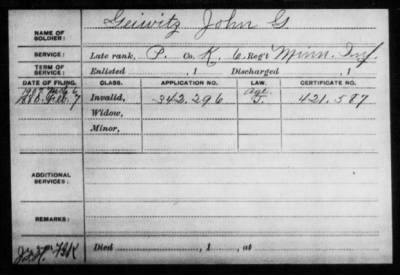 Geiwitz John G.
NAME OF SOLDIER:
SERVICE: Late rank, P. Co. K, 6 Reg't Minn. Inf.
TERM OF SERVICE: Enlisted , 1 Discharged , 1
DATE OF FILING. CLASS. APPLICATION NO. LAW. CERTIFICATE NO.
1907 6 Age
1880. Feb. 7 Invalid, 342.296 J. 421.587
Widow,
Minor,
ADDITIONAL SERVICES:
REMARKS:
Died , 1 , at